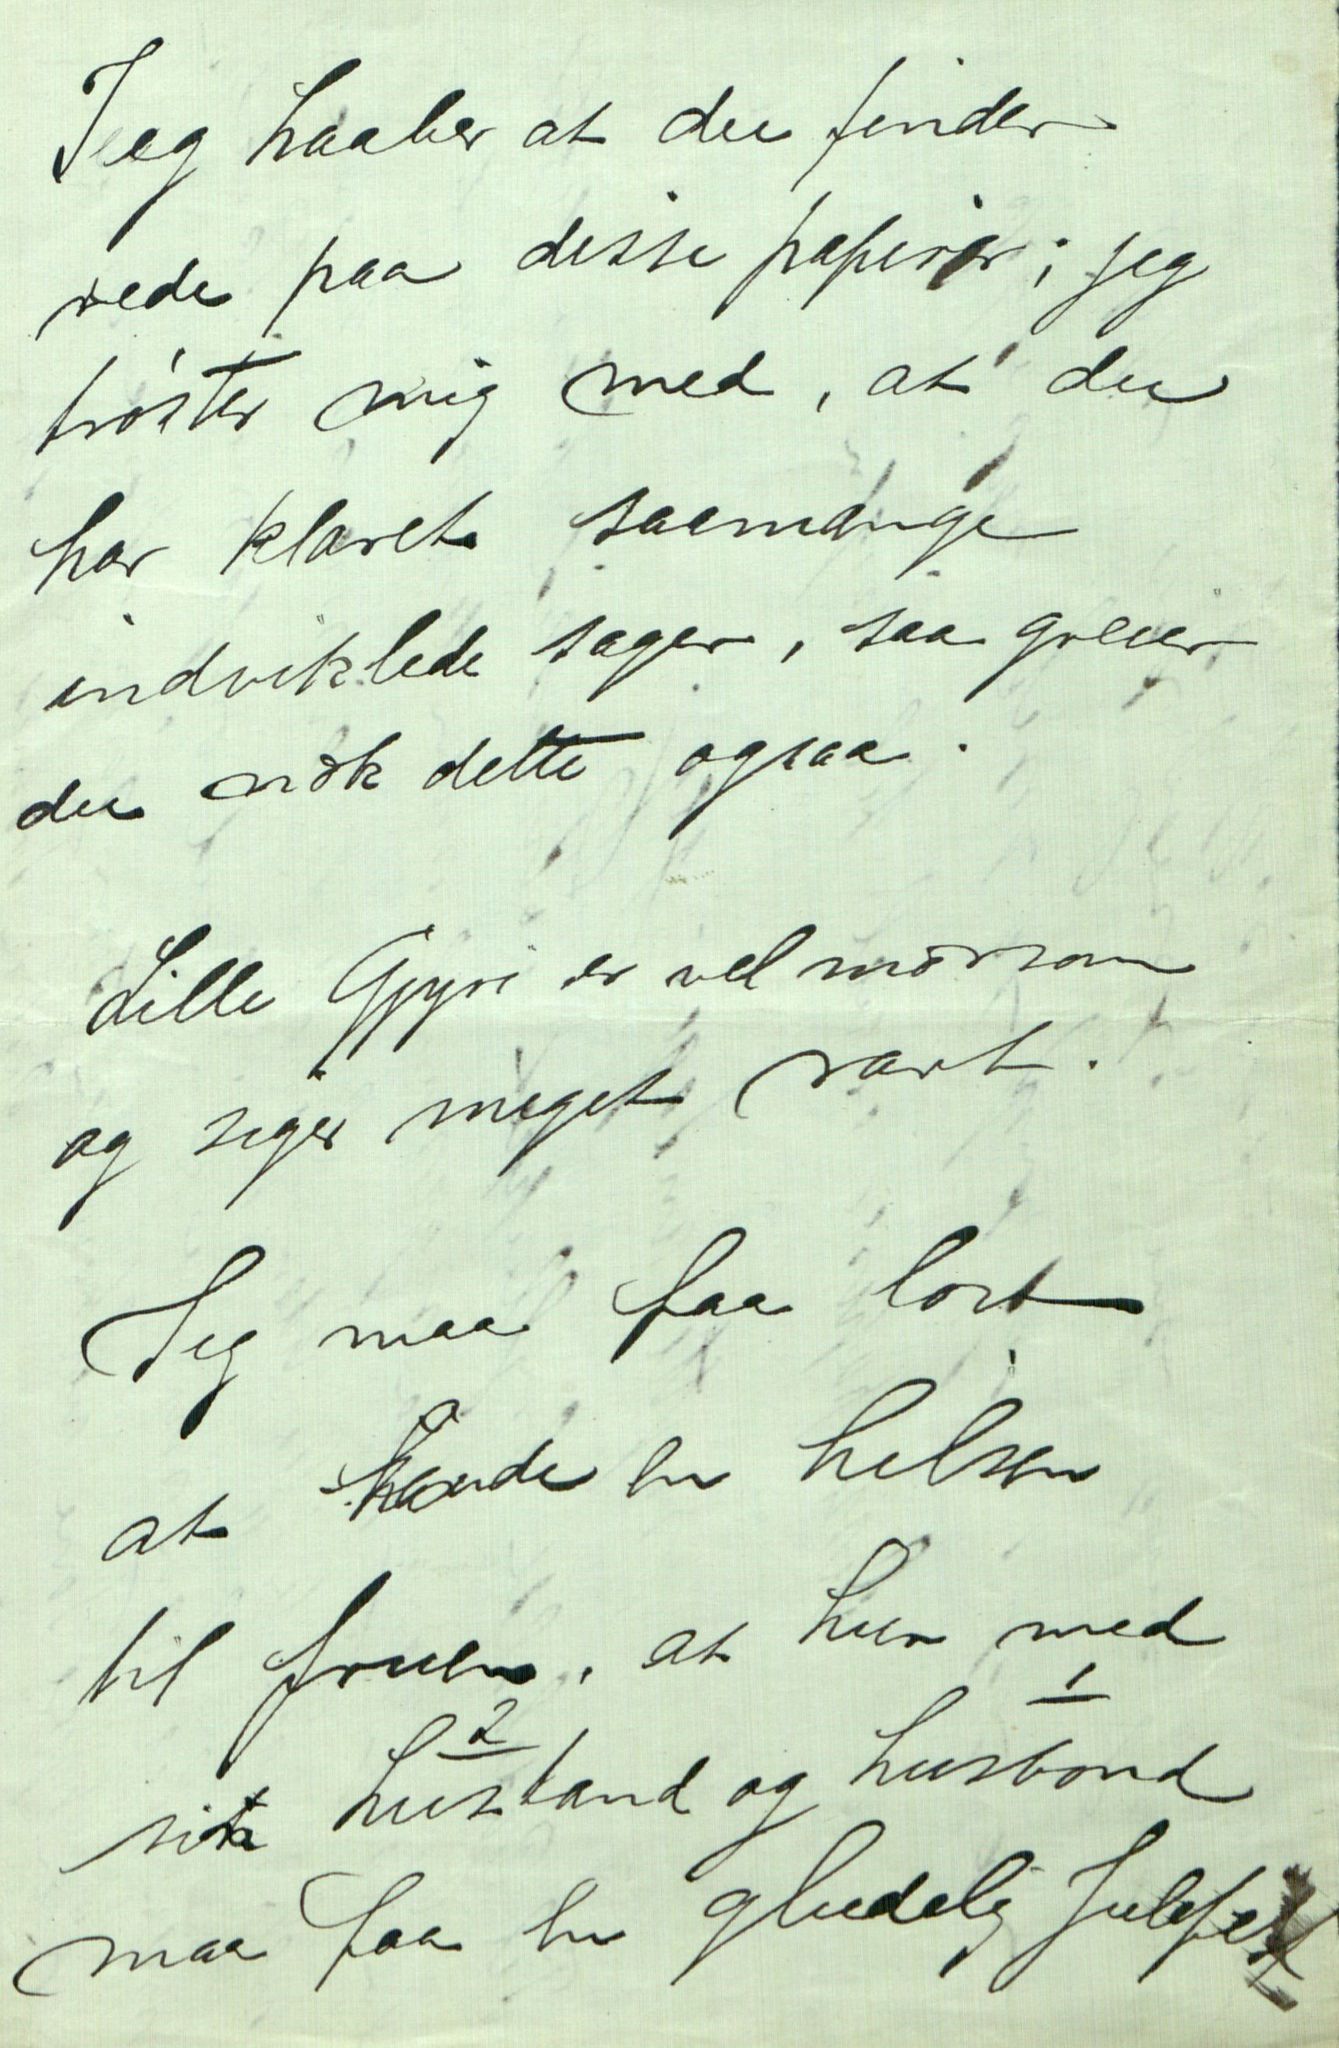 Jeg haaber at du finder
rede paa disse papirer; jeg
trøster mig med, at du
har klaret saamange
indviklede sager, saa greier
du nok dette ogsaa.
Lille Gyri er vel morsom
og siger meget rart.
Jeg maa faa lov
at sende en helsen
til fruen, at hun med
1
2
sit husstand og husbond
maa faa en gledelig Julefest